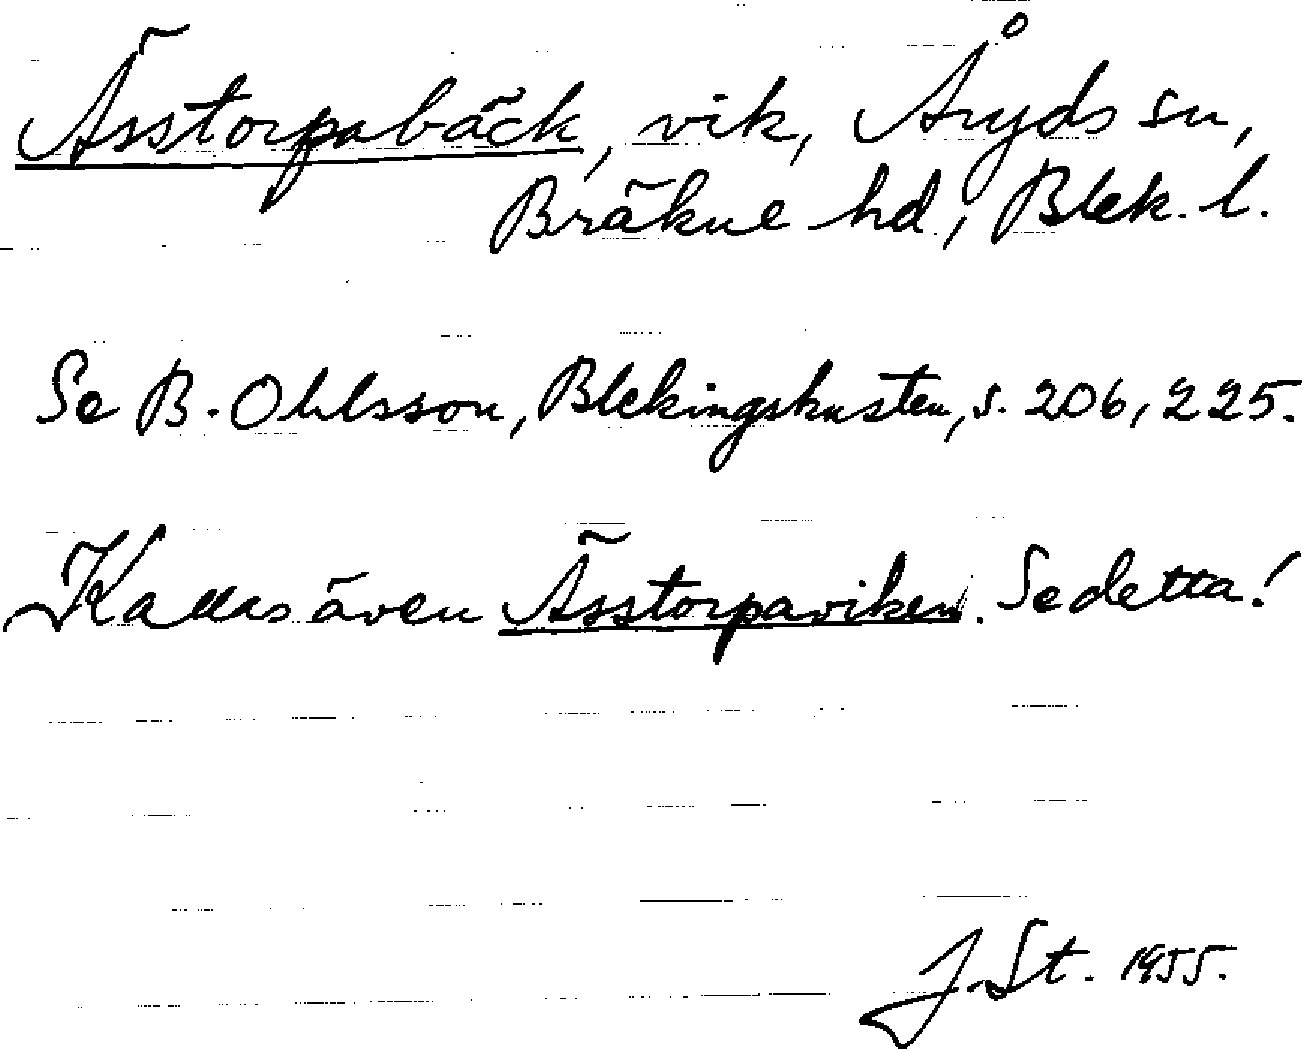 Ässtorpabäck, vik, Åryds sn,
Bräkne hd, Blek. l.
Se B. Ohlsson, Blekingskusten, s. 206, 225.
Kallas även Ässtorpaviken. Se detta!
J. St. 1955.